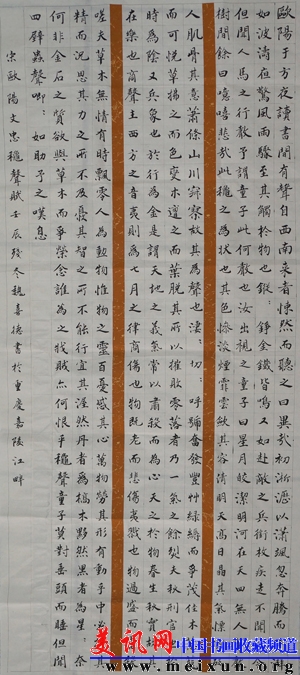 歐陽子方夜讀書聞有聲自西南來者悚然而聽之曰異哉初淅瀝以瀟颯奔騰而
如波濤夜驚風雨驟至其觸於物也鏦〻錚〻金鐵皆鳴又如赴敵之兵銜枚疾走不聞
但聞人馬之行聲予謂童子此何聲也汝出視之童子曰星月皎潔明河在天四無人聲
樹間餘曰噫嘻悲哉此秋聲之為狀也其色慘淡煙霏雲斂其容清明天高日晶其氣慄
人肌骨其意蕭條山川寂寥故其為聲也淒〻切〻呼號奮發豐草綠縟而爭茂佳木
而可悅草拂之而色變木遭之而葉脫其所以摧敗零落者乃一氣之餘烈夫秋刑官也
時為陰又兵象也於行為金是謂天地之義氣常以肅殺而為心天之於物春生秋實故其
在樂也商聲主西方之音夷則為七月之律商傷也物既老而悲傷夷戮也物過盛而當
嗟夫草木無情有時飄零人為動物惟物之靈百憂感其心萬物勞其形有動乎中必其
精而況思其力之所不及憂其智之所不能宜其渥然丹者為槁木黟然黑者為星〻奈
何非金石之質欲與草木而爭榮念誰為之戕賊亦何恨乎穐聲童子莫對垂頭而睡但聞
四壁蟲聲唧〻如助予之嘆息
宋歐陽文忠穐聲賦壬辰殘冬魏喜德書於重慶嘉陵江畔
美讯网 中国书画收藏频道
www.meixun.org